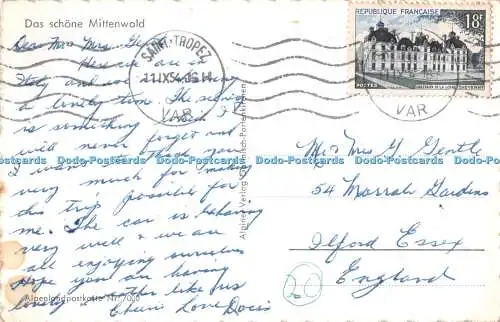 Das schöne Mittenwold
Dear Mr & Mrs. Ge
Here we are in
Italy and we are having
a lovely time. The scenery
is something which I
will never forget and
I want to thank you
very much for making
this trip possible for
me. The car is behaving
very well & we are
all enjoying ourselves
Hope you are having
lovely weather like us
Cheerio Love Doris
Alpenlandpostkarte Nr. 7000
SAINT-TROPEZ
11 IX 54
VAR
VAR
REPUBLIQUE FRANÇAISE
18F
POSTES
Mr & Mrs G Gentle
54 Marrah Gardens
Ilford Essex
England
20
Dodo-Postcards Dodo-Postcards Dodo-Postcards Dodo-Postcards Dodo-Postcards Dodo-Postcards